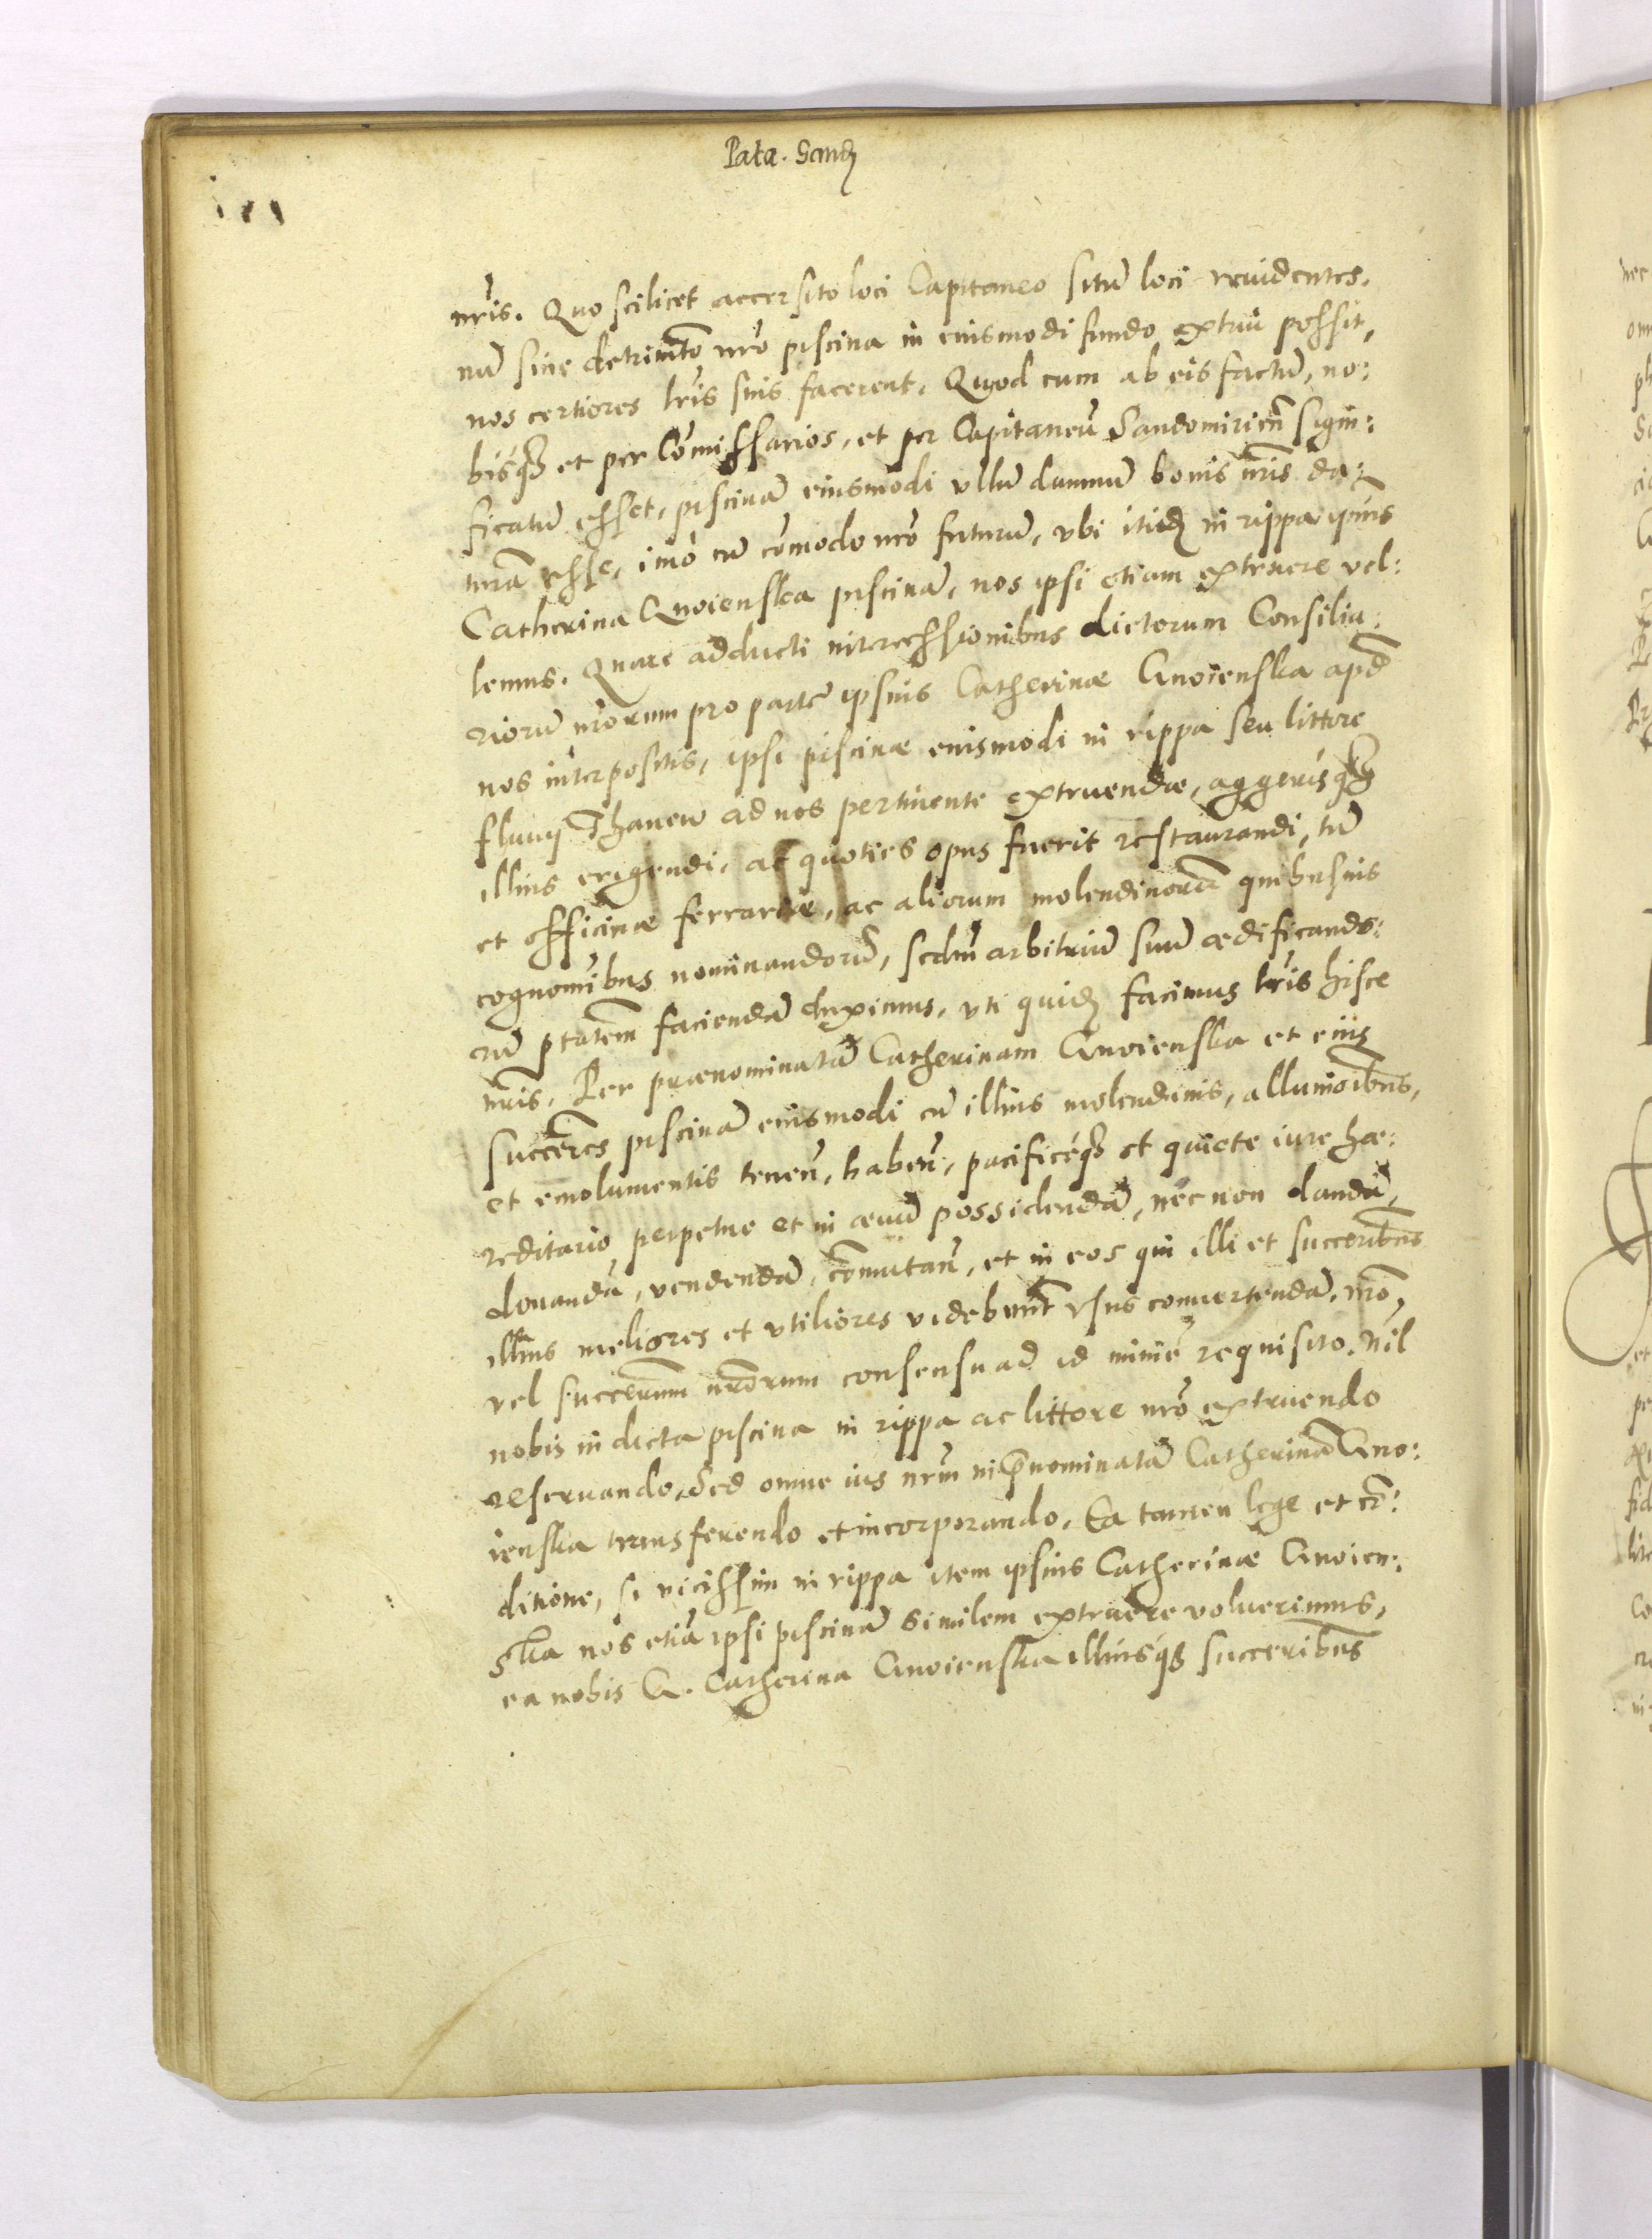 Pala. Sand
nr̃is. Quo scilicet accersito loci Capitaneo situ̅ loci reuidentes,
nu̅ sine detrime̅to nr̃o piscina in eiusmodi fundo extrui possit,
nos certiores lr̃is suis facerent. Quod cum ab eis factu̅, no:
bisq́ꝫ et per Co̅missarios, et per Capitaneu̅ Sandomirien̅ signi:
ficatu̅ esset, piscina̅ eiusmodi vllu̅ damnu̅ bonis nr̃is da:
tura̅ esse, imo cu̅ co̅modo nr̃o futuru̅, vbi itide̅ in rippa ipsius
Catherina Gnoienska piscina̅, nos ipsi etiam extruere vel:
lemus. Quare adducti intercessionibus dictorum Consilia:
rioru̅ nr̃orum pro parte ipsius Catherinæ Gnoienska apd̅
nos interpositis, ipsi piscinæ eiusmodi in rippa seu littore
fluuij Thanew ad nos pertinente extruendæ, aggerisq́ꝫ
illius erigendi, ac quoties opus fuerit restaurandi, tu̅
et officinæ ferrariæ, ac aliorum molendinoru̅ quibusuis
cognomi̅bus nominandoru̅, scdm̅ arbitriu̅ suu̅ ædificando:
ru̅ p̱tatem̅ facienda̅ duximus, vti quidẽ facimus lr̃is hisce
nr̃is. Per prænominata̅ Catherinam Gnoienska et eiuꝫ
succe̅res piscina̅ eiusmodi cu̅ illius molendinis, alluuio̅ibus,
et emolumentis tenen̅, haben̅, pacificeq́ꝫ et quiete iure hæ:
reditario perpetuo et in æuu̅ possidenda̅, nec non danda̅,
donanda̅, vendenda̅, co̅mutan̅, et in eos qui illi et succerib̅us
illius meliores et vtiliores videbun̅t vsus conuertenda̅, nr̃o,
vel succerum̅ nr̃orum consensu ad id mini̅e requisito. Nil
nobis in dicta piscina in rippa ac littore nr̃o extruendo
reseruando, Sed omne ius nr̃m in p̅nominata̅ Catherina̅ Gno:
ienska transferendo et incorporando. Ea tamen lege et co̅:
ditione, si vicissim in rippa item ipsius Catherinæ Gnoien:
ska nos etia̅ ipsi piscina̅ similem extruere voluerimus,
ea nobis G. Catherina Gnoienska illiusq́ꝫ succerib̅us